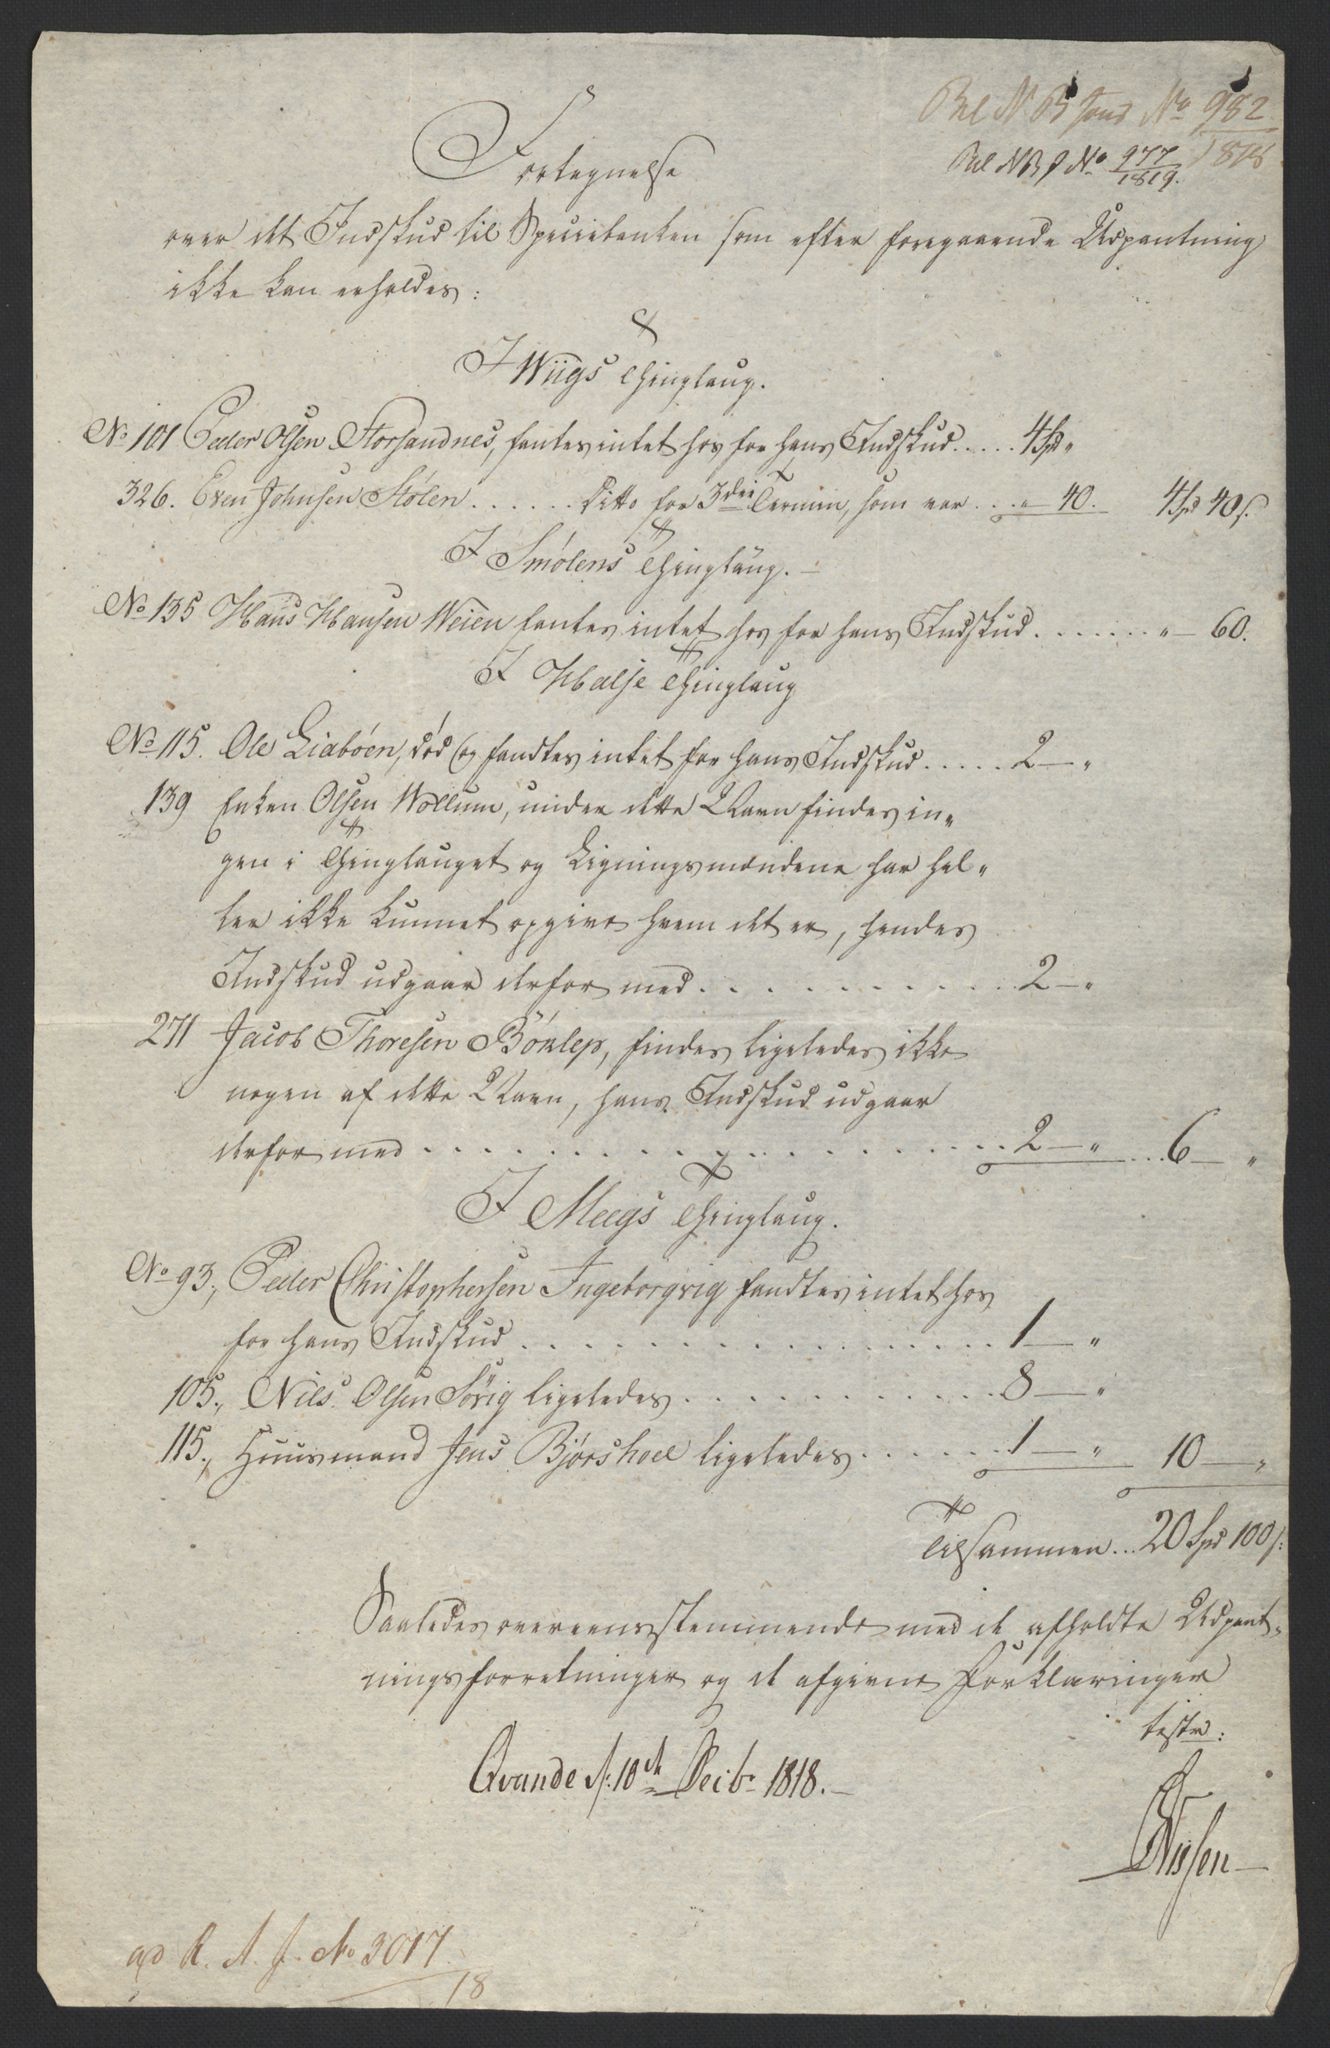 Bel N B Fond No 982/1818
Bel NB f No 977/1819.
Fortegnelse
over det Indskud til Speciebanken som efter foregaaende Udpantning
ikke kan erholdes:
I Wiigs Thinglaug.
No 101 Peder Olsen Storsandnes, fantes intet hos for hans Indskud..... 4 Spd "
326. Even Johnsen Stølen...... Ditto for 3die Termin, som var ... " 40. 4 Spd 40 s.
I Smølens Thinglaug.
No 135 Hans Hansen Weien fantes intet hos for hans Indskud....... " 60.
I Halse Thinglaug
No 115. Ole Liabøen, død og fandtes intet for hans Indskud..... 2 "
139 Enken Olsen Wollum, under dette Navn findes in-
gen i Thinglauget og Ligningsmændene har hel-
ler ikke kunnet opgive hvem det er, hendes
Indskud udgaar derfor med........... 2 "
271 Jacob Thoresen Böklep, findes ligeledes ikke
nogen af dette Navn, hans Indskud udgaar
derfor med............... 2 " ... 6 "
I Meegs Thinglaug.
No 93., Peder Christophersen Ingeborgvig fandtes intet hos
for hans Indskud............... 1 "
105., Nils Olsen Sörig ligeledes......... 8 "
115., Huusmand Jens Bjørshoel ligeledes...... 1 " 10 "
Tilsammen... 20 Spd 100 s:
Saaledes overeensstemmende med de afholdte Udpant-
ningsforretninger og de afgivne Forklaringer
testr:
Qvande d: 10de Decbr 1818.
Nissen
ad R. A. J. No 3017/18